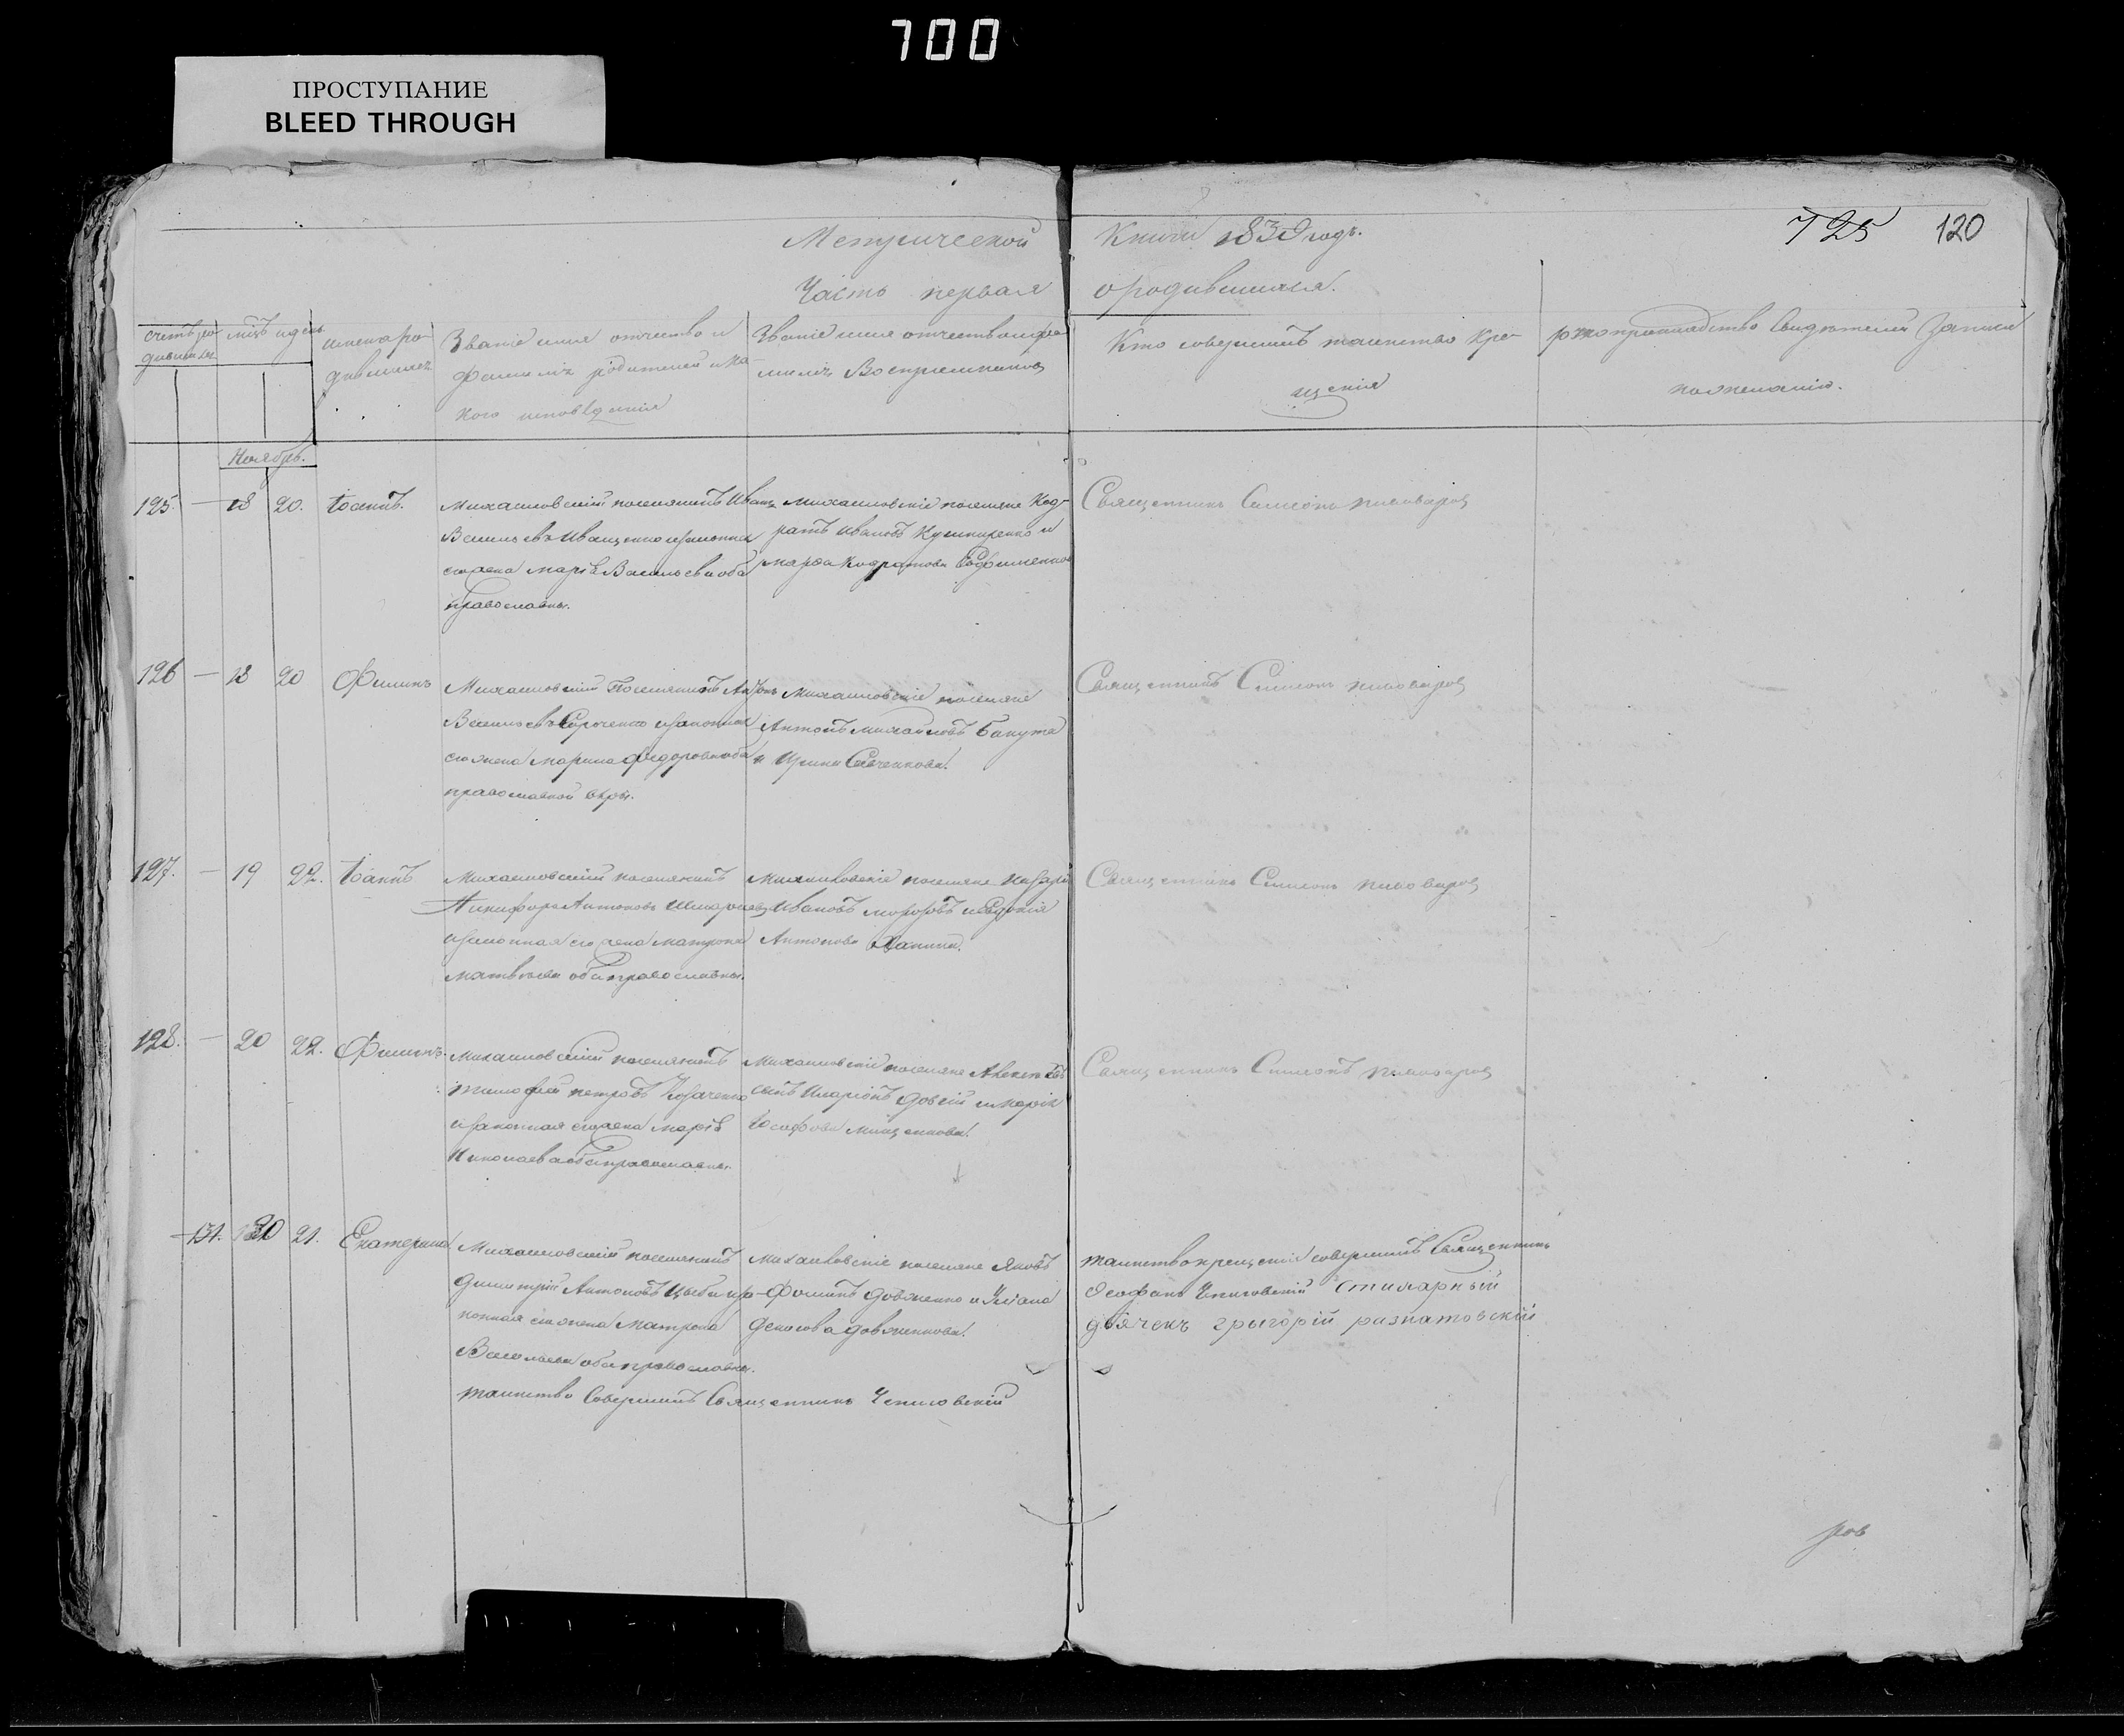 700
ПРОСТУПАНИЕ
BLEED THROUGH
Метрической Книги 1839 годъ.
725 120
Часть первая о родившихся.
счетъ родившихся
мцъ и день
имена родившихся
Званіе имя отчество и фамилія родителей и какого исповѣданія
Званіе имя отчество и фамилія Воспріемниковъ
Кто совершилъ таинство крещенія
рукоприкладство Свидѣтелей записи по желанію.
Ноябрь.
125. — 18 20. Іоаннъ.
Михаиловскій поселянинъ Иванъ
Васильевъ Иващенко и законная
его жена Марія Васильева оба
православны.
Михаиловскіе поселяне Код-
ратъ Ивановъ Кушниренко и
Марфа Кодратова
Священникъ Симеонъ Пивоваровъ
126 — 18 20 Филипъ
Михаиловскій Поселянинъ
Васильевъ и законная
его жена Марина Федорова оба
православной вѣры.
Михаиловскіе поселяне
Антонъ Михайловъ Бакута
и Ирина Савченкова.
Священникъ Симеонъ Пивоваровъ
127. — 19 22. Іоаннъ
Михаиловскій поселянинъ
Никифоръ Антоновъ
и законная его жена Матрона
Матвѣева оба православны.
Михаиловскіе поселяне Назарій
Ивановъ Морозовъ и Евдокія
Антонова
Священникъ Симеонъ Пивоваровъ
128. — 20 22. Филипъ.
Михаиловскій поселянинъ
Тимофей Петровъ Козаченко
и законная его жена Марія
Николаева оба православны.
Михаиловскіе поселяне
сынъ Иларіонъ Довгій и Марія
Іосифова Мищенкова.
Священникъ Симеонъ Пивоваровъ
131. 20 21. Екатерина
Михаиловскій поселянинъ
Димитрій Антоновъ Цыба и за-
конная его жена Матрона
Васильева оба православны.
Таинство Совершилъ Священникъ Чепиговскій
Михаиловскіе поселяне Яковъ
Фоминъ Довженко и Уліана
Денисова Довженкова.
таинство крещенія совершилъ Священникъ
Феофанъ Чепиговскій
дьячекъ григорій